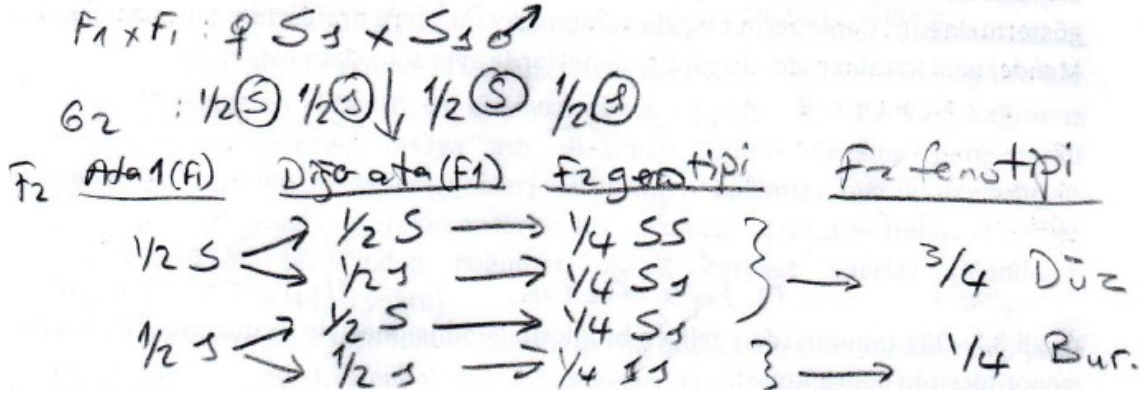 F1 x F1 : ♀ Ss x Ss ♂
G2 : 1/2 S 1/2 s 1/2 S 1/2 s
F2 Ata 1 (F1) Diğer ata (F1) F2 genotipi F2 fenotipi
1/2 S 1/2 S 1/4 SS
1/2 s 1/4 Ss 3/4 Düz
1/2 s 1/2 S 1/4 Ss
1/2 s 1/4 ss 1/4 Bur.